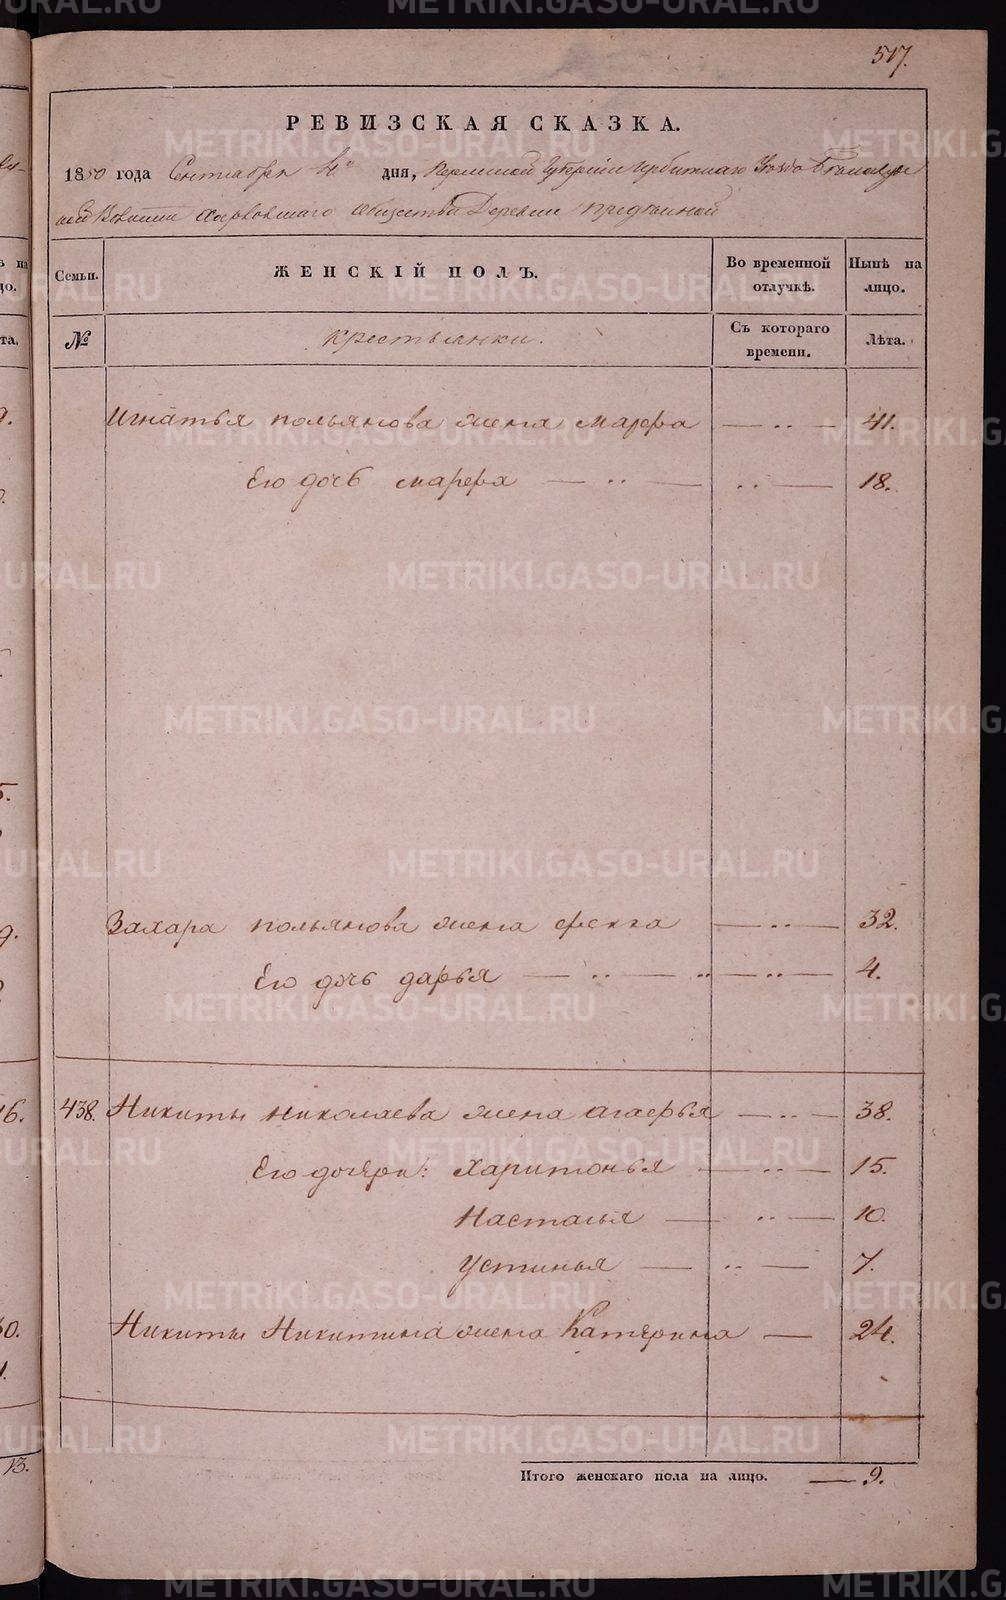 517.
РЕВИЗСКАЯ СКАЗКА.
1850 года Сентября 4го дня, Пермской Губернии Ирбитскаго Уезда
Волости Общества Деревни
Семьи.
ЖЕНСКІЙ ПОЛЪ.
Во временной отлучкѣ.
Нынѣ на лицо.
№
крестьянки.
Съ котораго времени.
Лѣта.
Игнатья польянова жена марфа — ·· — 41.
Его дочь марфа — ·· — ·· — 18.
Захара польянова жена фекла — ·· — 32.
Его дочь дарья — ·· — ·· — ·· — 4.
438. Никиты николаева жена агафья — ·· — 38.
Его дочери: Харитонья — ·· — 15.
Настасья — ·· — 10.
Устинья — ·· — 7.
Никиты Никитина жена Катерина — 24.
Итого женскаго пола на лицо. — 9.
13.
METRIKI.GASO-URAL.RU